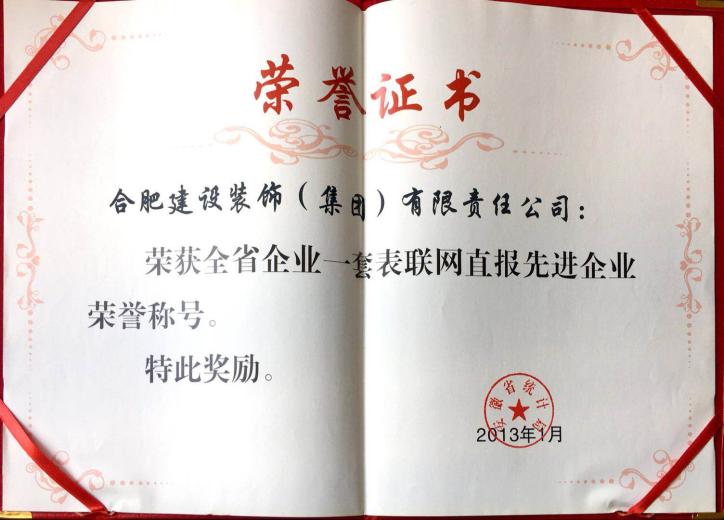 荣誉证书
合肥建设装饰（集团）有限责任公司：
荣获全省企业一套表联网直报先进企业
荣誉称号。
特此奖励。
安徽省统计局
2013年1月